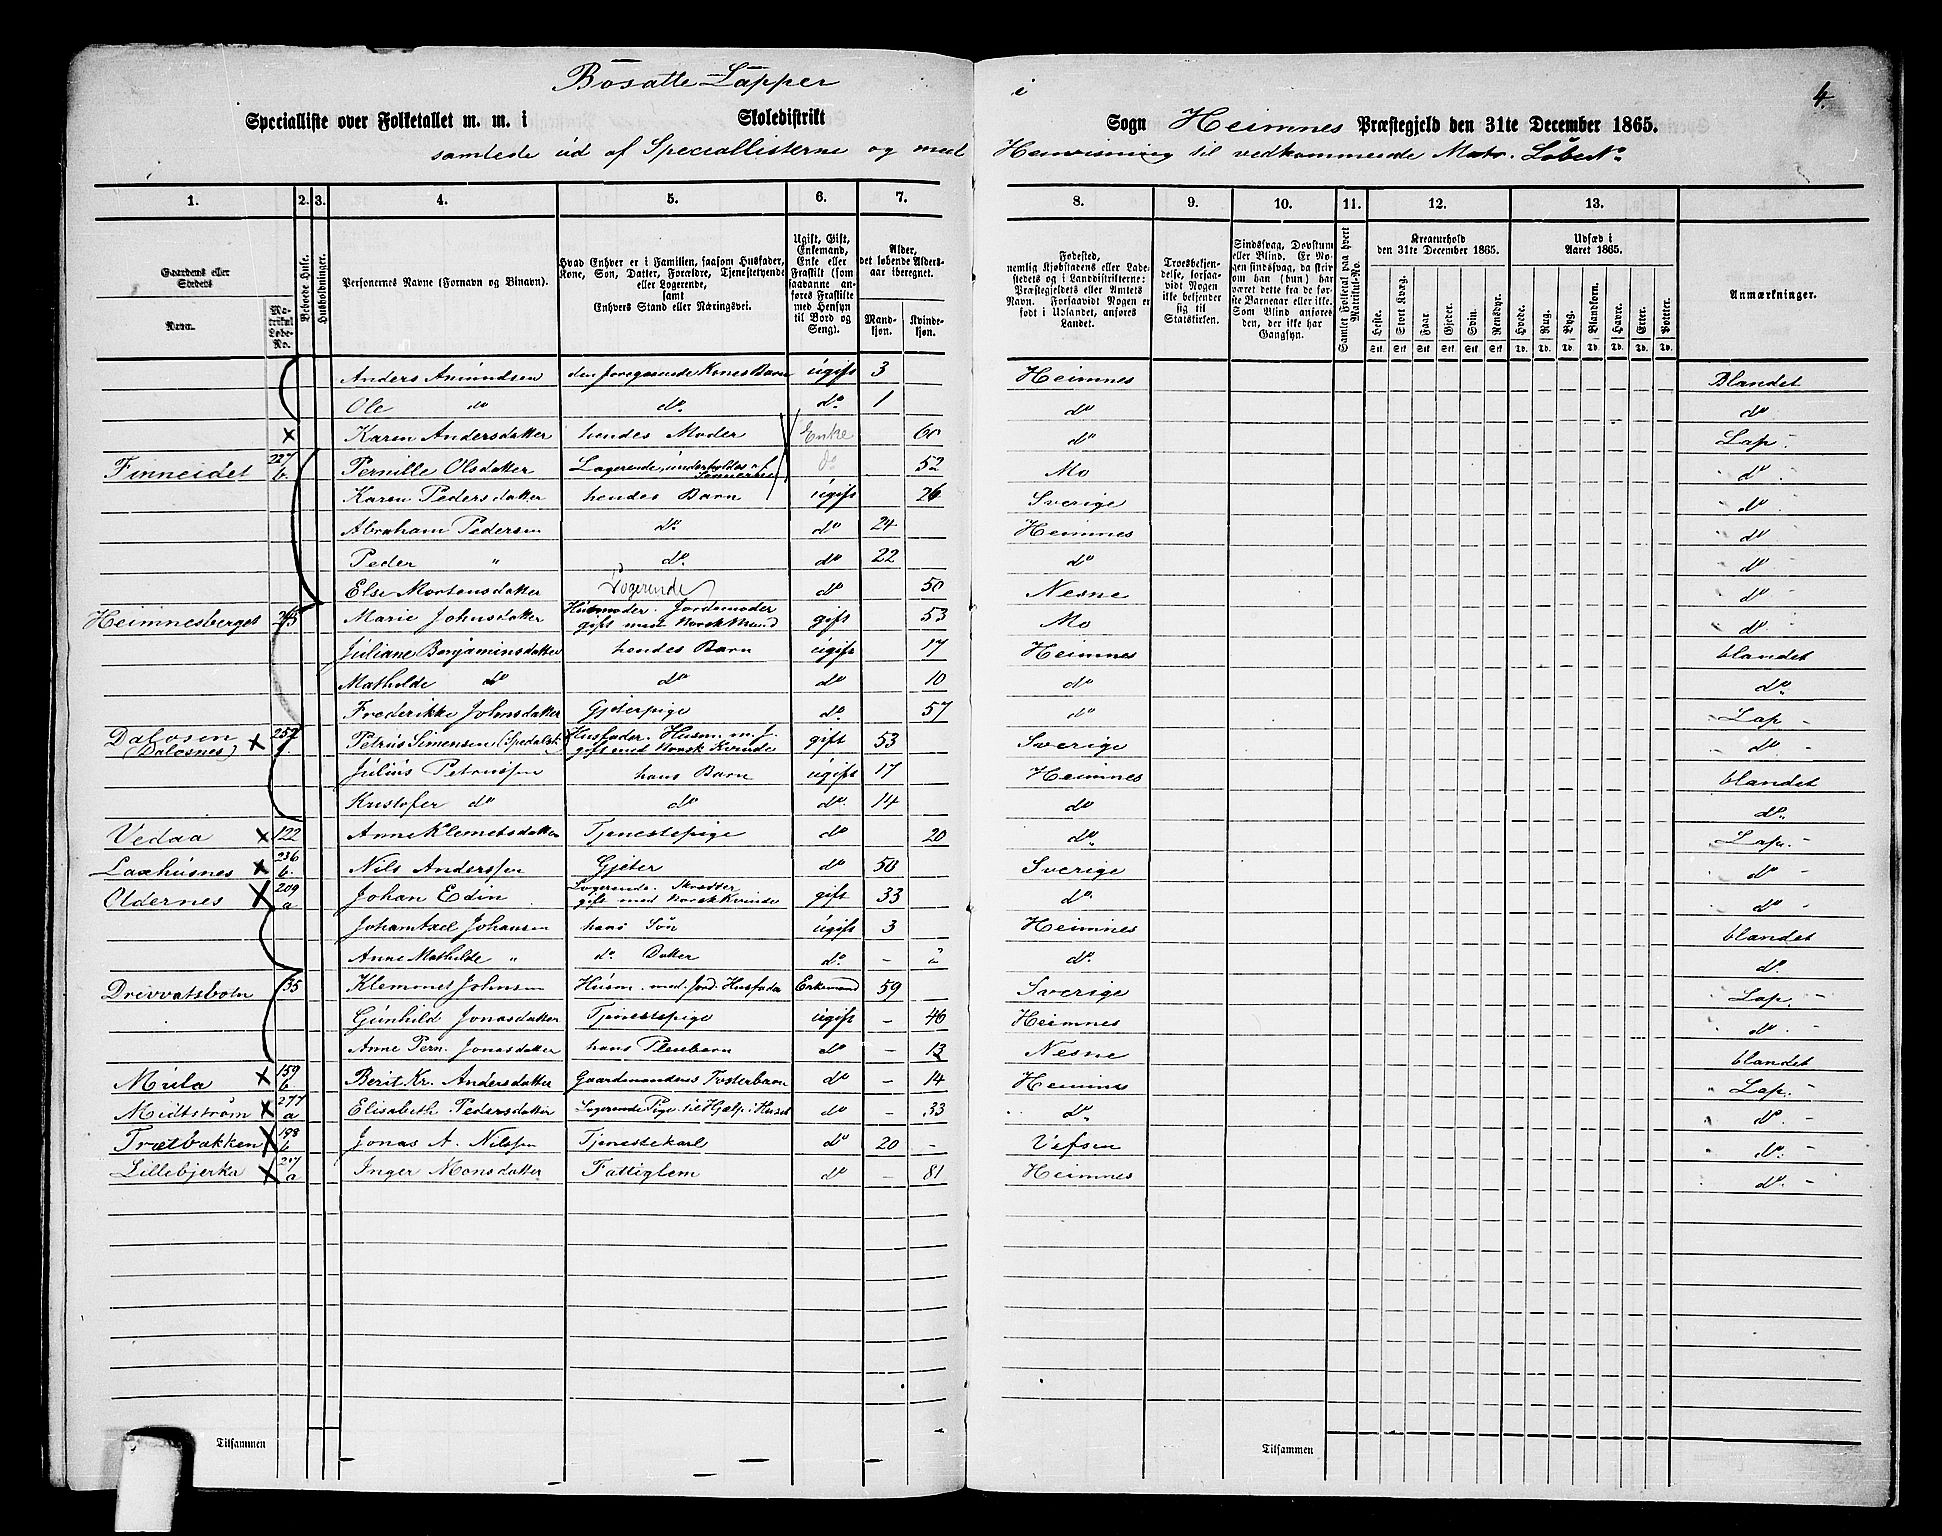 Bosatte Lapper
i
4.
Specialliste over Folketallet m. m. i Skoledistrikt
Sogn Heimnes Præstegjeld den 31te December 1865.
samlede ud af Speciallisterne og med Henvisning til vedkommende Matr. Löbe No
1. 2. 3. 4. 5. 6. 7. 8. 9. 10. 11. 12. 13.
Gaardens eller Stedets
Navn.
Matrikul Løbe-No.
Beboede Huse.
Husholdninger.
Personernes Navne (Fornavn og Binavn).
Hvad Enhver er i Familien, saasom Husfader, Kone, Søn, Datter, Forældre, Tjenestetyende eller Logerende, samt Enhvers Stand eller Næringsvei.
Ugift, Gift, Enkemand, Enke eller Fraskilt (som saadanne anføres Fraskilte med Hensyn til Bord og Seng).
Alder, det løbende Aldersaar iberegnet.
Mandkjøn.
Kvindekjøn.
Fødested, nemlig Kjøbstadens eller Ladestedets og i Landdistrikterne: Præstegjeldets eller Amtets Navn. Forsaavidt Nogen er født i Udlandet, anføres Landet.
Troesbekjendelse, forsaavidt Nogen ikke bekjender sig til Statskirken.
Sindssvag, Døvstum eller Blind. Er Nogen sindssvag, da skrives om han (hun) har været dette fra de første Barneaar eller ikke. Som Blind anføres den, der ikke har Gangsyn.
Samlet Folketal paa hvert Matrikule-No.
Kreaturhold den 31te December 1865.
Heste. Stort Kvæg. Faar. Gjeder. Svin. Rensdyr.
Stk. Stk. Stk. Stk. Stk. Stk.
Udsæd i Aaret 1865.
Hvede. Rug. Byg. Blandkorn. Havre. Erter. Poteter.
Td. Td. Td. Td. Td. Td. Td.
Anmærkninger.
Anders Amundsen den foregaaende Kones Barn ugift 3 Heimnes Blandet
Ole do do. do. 1 do do
x Karen Andersdatter hendes Moder Enke 60 do Lap.
Finneidet 227 b. Pernille Olsdatter Logerende, underholdes af Sønnerne do 52 Mo do
Karen Pedersdatter hendes Barn ugift 26 Sverige do
Abraham Pedersen do. do 24 Heimnes do
Peder " do. do 22 do do
Else Mortensdatter Logerende do 50 Nesne do
Heimnesberget 265 Marie Johnsdatter Husmoder. Jordemoder gift med Norsk Mand gift 53 Mo do.
Juliane Benjaminsdatter hendes Barn ugift 17 Heimnes blandet
Mathilde do do do 10 do do
Frederikke Johnsdatter Gjeterpige do. 57 do Lap
Dalosen (Dalosnes) x 257 Petrus Simensen (Spedalsk) Husfader. Husm. m. J. gift med Norsk Kvinde gift 53 Sverige do
Julius Petrussen hans Barn ugift 17 Heimnes blandet
Kristofer do do do. 14 do do.
Vedaa x 122 Anne Klemetsdatter Tjenestepige do 20 do. Lap.
Laxhusnes x 236 b. Nils Anderssen Gjeter do 50 Sverige do
Oldernes x 209 a Johan Edin Logerende. Skrædder gift med Norsk Kvinde gift 33 do. do
Johan Axel Johansen hans Søn ugift 3 Heimnes blandet
Anne Mathilde " do. Datter do. - 2 do. do.
Drevvatsbotn 135 Klemmet Johnsen Husm. med Jord. Husfader Enkemand 59 Sverige Lap.
Gunhild Jonasdatter Tjenestepige ugift - 46 Heimnes do.
Anne Pern. Jonasdatter hans Pleiebarn do - 13 Nesne blandet
Mula x 159 b. Berit Kr. Andersdatter Gaardmandens Fosterbarn do - 14 Heimnes Lap.
Midtstrøm x 277 a Elisabeth Pedersdatter Logerende Pige til Hjælp i Huset do - 33 do. do.
Trælbakken x 198 b Jonas A. Nilssen Tjenestekarl do 20 - Vefsen do.
Lillebjerka x 217 a Inger Monsdatter Fattiglem do - 81 Heimnes do.
Tilsammen
Tilsammen